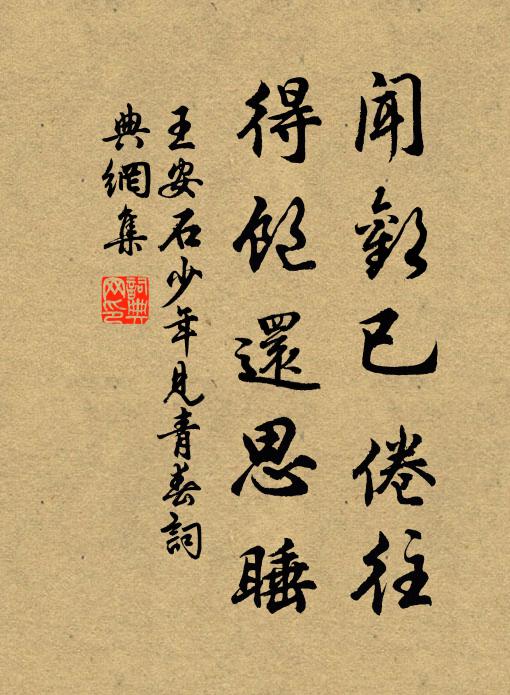 聞歡已倦往
得飽還思睡
王安石少年見青春詞
典網集
詞典网印